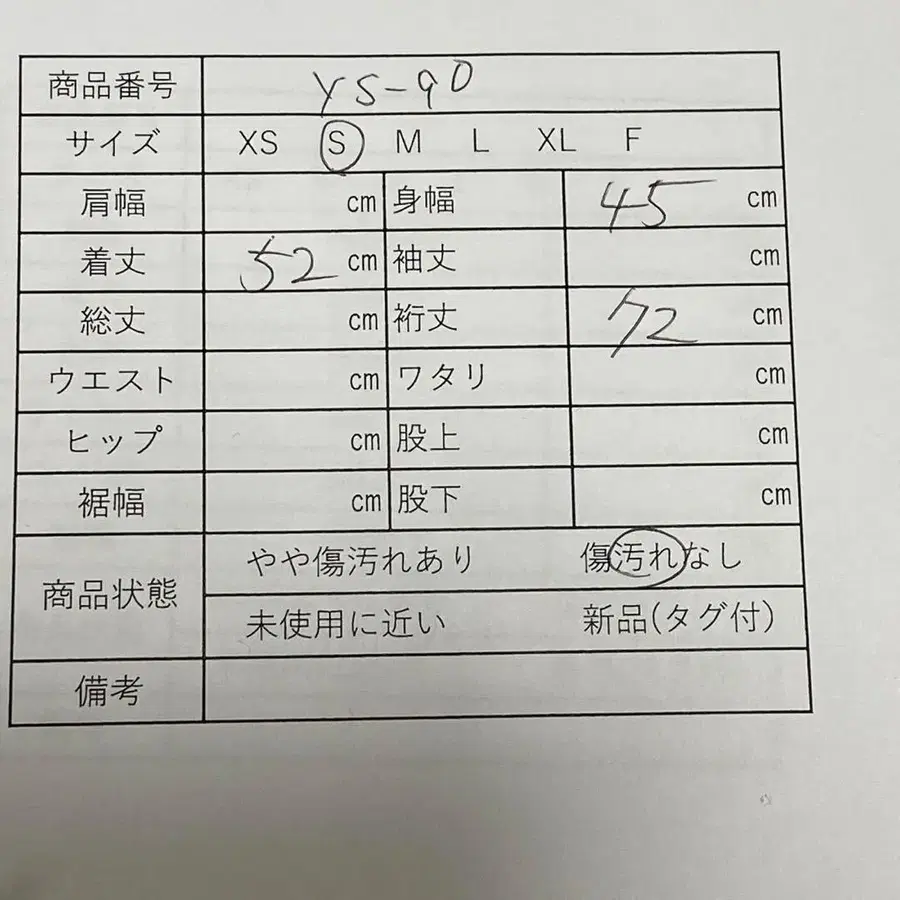 商品番号 YS-90
サイズ XS S M L XL F
肩幅 cm 身幅 45 cm
着丈 52 cm 袖丈 cm
総丈 cm 裄丈 72 cm
ウエスト cm ワタリ cm
ヒップ cm 股上 cm
裾幅 cm 股下 cm
商品状態 やや傷汚れあり 傷汚れなし
未使用に近い 新品(タグ付)
備考